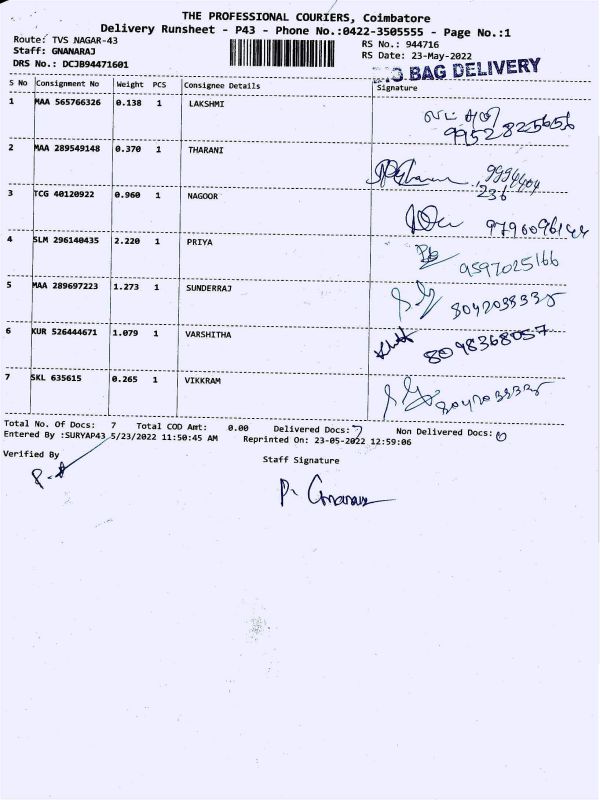 THE PROFESSIONAL COURIERS, Coimbatore
Delivery Runsheet - P43 - Phone No.:0422-3505555 - Page No.:1
Route: TVS NAGAR-43 RS No.: 944716
Staff: GNANARAJ RS Date: 23-May-2022
DRS No.: DCJB94471601 BAG DELIVERY
S No Consignment No Weight PCS Consignee Details Signature
1 MAA 565766326 0.138 1 LAKSHMI
9952825656
2 MAA 289549148 0.370 1 THARANI
9994404
236
3 TCG 40120922 0.960 1 NAGOOR
4 SLM 296140435 2.220 1 PRIYA
9597025166
5 MAA 289697223 1.273 1 SUNDERRAJ
6 KUR 526444671 1.079 1 VARSHITHA
8098368057
7 SKL 635615 0.265 1 VIKKRAM
Total No. Of Docs: 7 Total COD Amt: 0.00 Delivered Docs: 7 Non Delivered Docs: 0
Entered By :SURYAP43 5/23/2022 11:50:45 AM Reprinted On: 23-05-2022 12:59:06
Verified By
Staff Signature
P. Gnanaraj